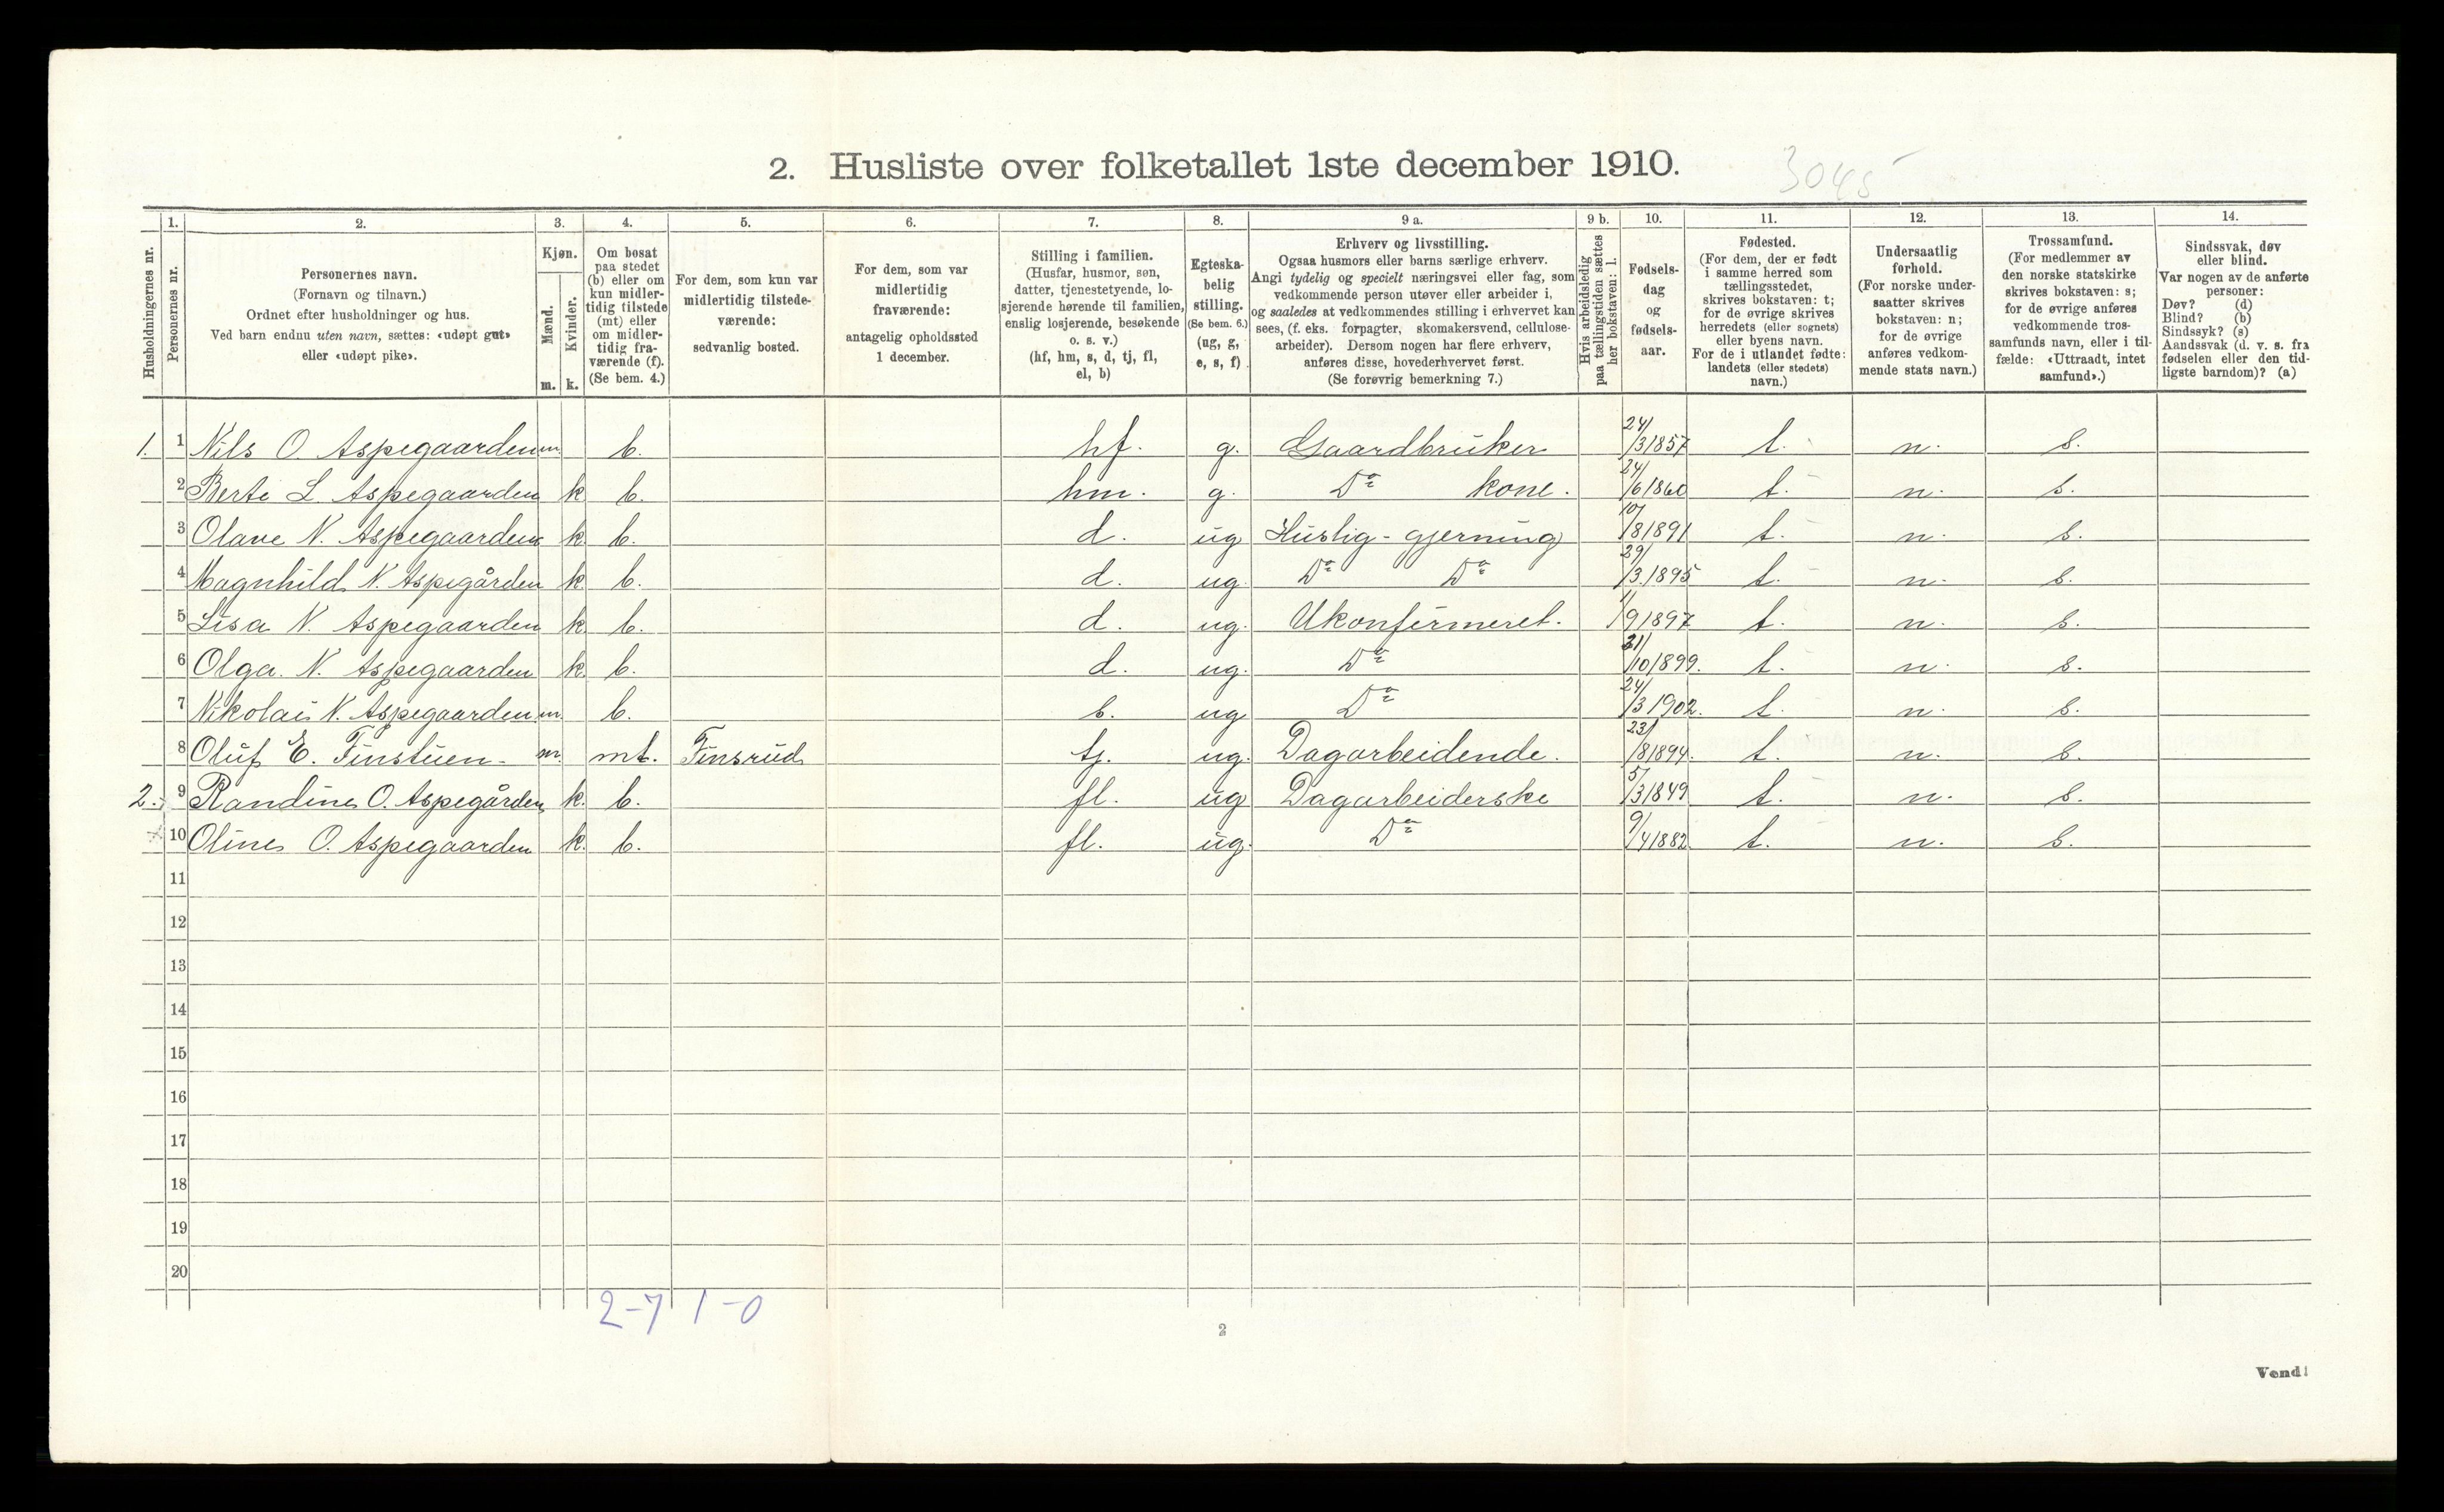 2. Husliste over folketallet 1ste december 1910.
3045
Husholdningernes nr.
1.
Personernes nr.
2.
Personernes navn.
(Fornavn og tilnavn.)
Ordnet efter husholdninger og hus.
Ved barn endnu uten navn, sættes: «udøpt gut»
eller «udøpt pike».
3.
Kjøn.
Mænd.
Kvinder.
m. k.
4.
Om bosat
paa stedet
(b) eller om
kun midler-
tidig tilstede
(mt) eller
om midler-
tidig fra-
værende (f).
(Se bem. 4.)
5.
For dem, som kun var
midlertidig tilstede-
værende:
sedvanlig bosted.
6.
For dem, som var
midlertidig
fraværende:
antagelig opholdssted
1 december.
7.
Stilling i familien.
(Husfar, husmor, søn,
datter, tjenestetyende, lo-
sjerende hørende til familien,
enslig losjerende, besøkende
o. s. v.)
(hf, hm, s, d, tj, fl,
el, b)
8.
Egteska-
belig
stilling.
(Se bem. 6.)
(ug, g,
e, s, f)
9 a.
Erhverv og livsstilling.
Ogsaa husmors eller barns særlige erhverv.
Angi tydelig og specielt næringsvei eller fag, som
vedkommende person utøver eller arbeider i,
og saaledes at vedkommendes stilling i erhvervet kan
sees, (f. eks. forpagter, skomakersvend, cellulose-
arbeider). Dersom nogen har flere erhverv,
anføres disse, hovederhvervet først.
(Se forøvrig bemerkning 7.)
9 b.
Hvis arbeidsledig
paa tællingstiden sættes
her bokstaven: l.
10.
Fødsels-
dag
og
fødsels-
aar.
11.
Fødested.
(For dem, der er født
i samme herred som
tællingsstedet,
skrives bokstaven: t;
for de øvrige skrives
herredets (eller sognets)
eller byens navn.
For de i utlandet fødte:
landets (eller stedets)
navn.)
12.
Undersaatlig
forhold.
(For norske under-
saatter skrives
bokstaven: n;
for de øvrige
anføres vedkom-
mende stats navn.)
13.
Trossamfund.
(For medlemmer av
den norske statskirke
skrives bokstaven: s;
for de øvrige anføres
vedkommende tros-
samfunds navn, eller i til-
fælde: «Uttraadt, intet
samfund».)
14.
Sindssvak, døv
eller blind.
Var nogen av de anførte
personer:
Døv? (d)
Blind? (b)
Sindssyk? (s)
Aandssvak (d. v. s. fra
fødselen eller den tid-
ligste barndom)? (a)
1. 1 Nils O. Aspegaarden m. b. hf. g. Gaardbruker 24/3 1857 t. n. s.
2 Berte L Aspegaarden k b. hm. g. Do kone. 24/6 1860 t. n. s.
3 Olave N. Aspegaarden k. b. d. ug Huslig-gjerning 10/8 1891 t. n. s.
4 Magnhild N. Aspegården k b. d. ug. Do Do 29/3. 1895 t. n. s.
5 Lisa N. Aspegaarden k b. d. ug. Ukonfirmeret. 1/9 1897 t. n. s.
6 Olga. N. Aspegaarden k. b. d. ug. Do 21/10 1899. t. n. s.
7 Nikolai N. Aspegaarden m. b. s. ug Do 24/3 1902. t. n. s.
8 Oluf E. Finstuen - m. mt. Finsrud tj. ug. Dagarbeidende. 23/8 1894. t. n. s.
2. 9 Randine O. Aspegården k. b. fl. ug Dagarbeiderske 5/3 1849 t. n. s.
10 Oline O. Aspegaarden k. b. fl. ug. Do 9/4 1882 t. n. s.
11
12
13
14
15
16
17
18
19
20
2-7 1-0
2
Vend!